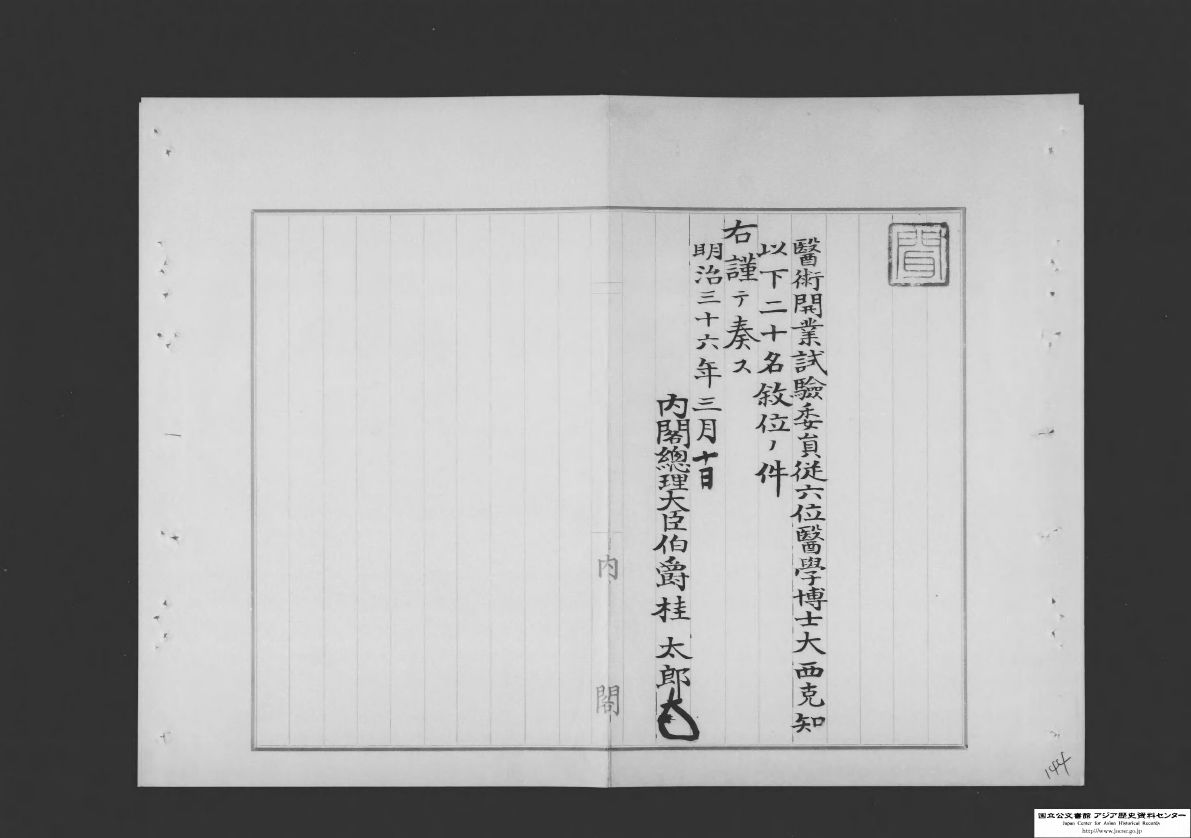 聞
醫術開業試驗委員從六位醫學博士大西克知
以下二十名敘位ノ件
右謹テ奏ス
明治三十六年三月十日
内閣總理大臣伯爵桂太郎
内閣
144
国立公文書館 アジア歴史資料センター
Japan Center for Asian Historical Records
http://www.jacar.go.jp